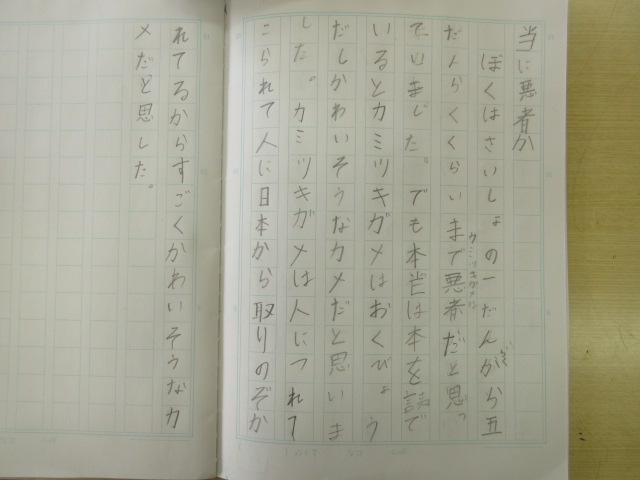 当に悪者か
ぼくはさいしょの一だんがら五
だんらくくらいまで悪者だと思っ
ていました。でも本当は本を読んで
いるとカミツキガメはおくびょう
だしかわいそうなカメだと思いま
した。カミツキガメは人につれて
こられて人に日本から取りのぞか
れてるからすごくかわいそうなカ
メだと思した。
カミツキガメは